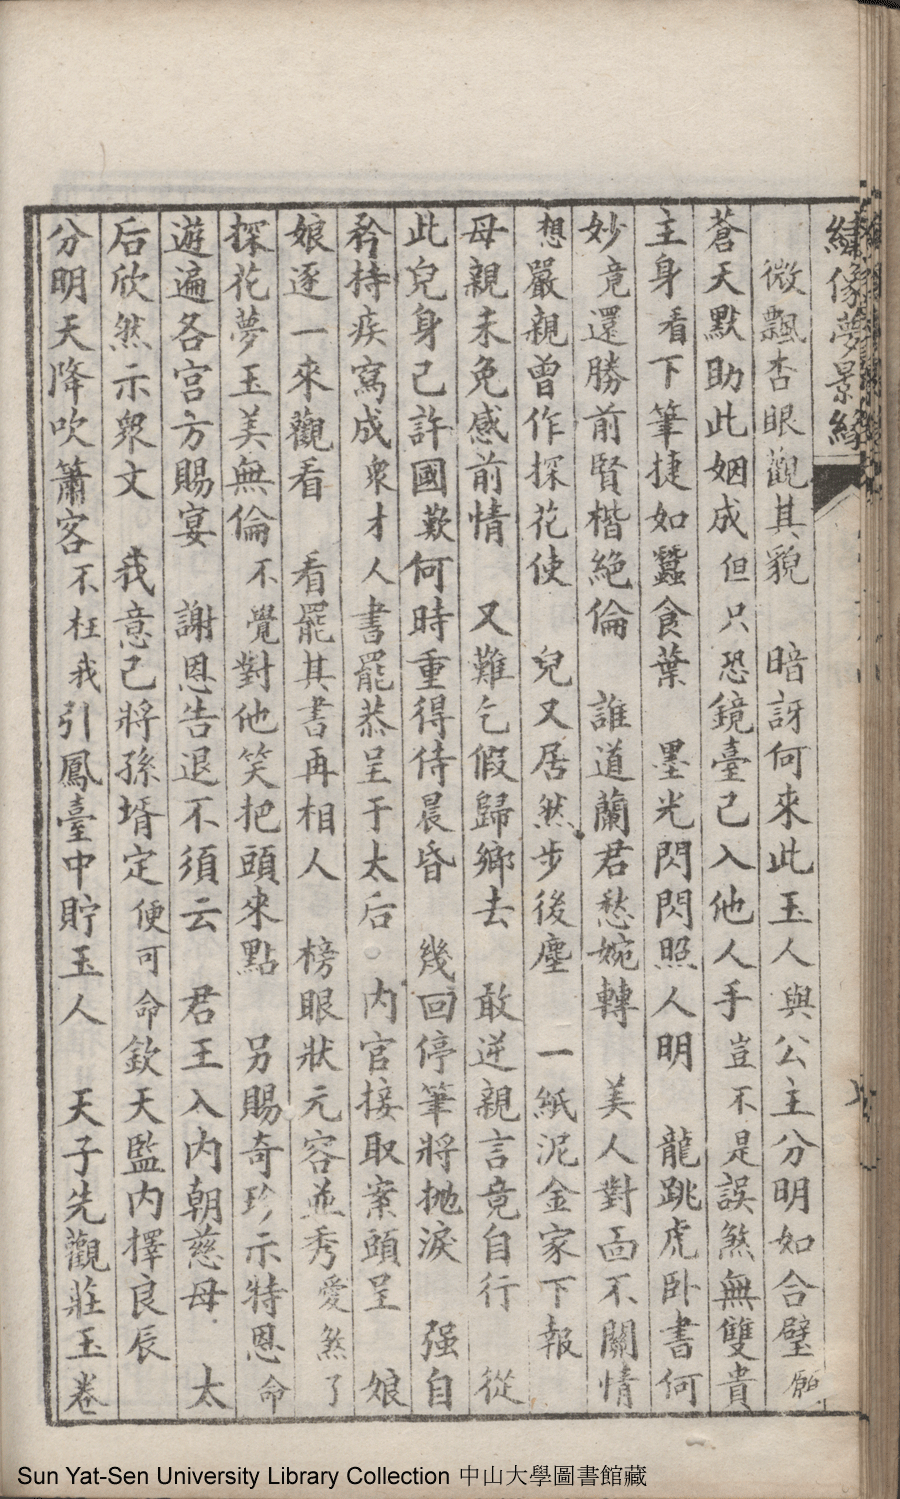 繡像夢景緣
微飄杏眼觀其貌　暗訝何來此玉人與公主分明如合璧願
蒼天默助此姻成但只恐鏡臺已入他人手豈不是誤煞無雙貴
主身看下筆捷如蠶食葉　墨光閃閃照人明　龍跳虎卧書何
妙竟還勝前賢楷絕倫　誰道蘭君愁婉轉　美人對面不關情
想嚴親曾作探花使　兒又居然步後塵　一紙泥金家下報
母親未免感前情　又難乞假歸鄉去　敢逆親言竟自行　從
此兒身己許國歎何時重得侍晨昏　幾回停筆將拋淚　强自
矜持疾寫成衆才人書罷恭呈于太后○内官接取案頭呈　娘
娘逐一來觀看　看罷其書再相人　榜眼狀元容並秀愛煞了
探花夢玉美無倫不覺對他笑把頭來點　另賜奇珍示特恩命
遊遍各宮方賜宴　謝恩告退不須云　君王入内朝慈母　太
后欣然示衆文　我意己將孫壻定便可命欽天監内擇良辰
分明天降吹簫客不枉我引鳳臺中貯玉人　天子先觀莊玉卷
Sun Yat-Sen University Library Collection 中山大學圖書館藏